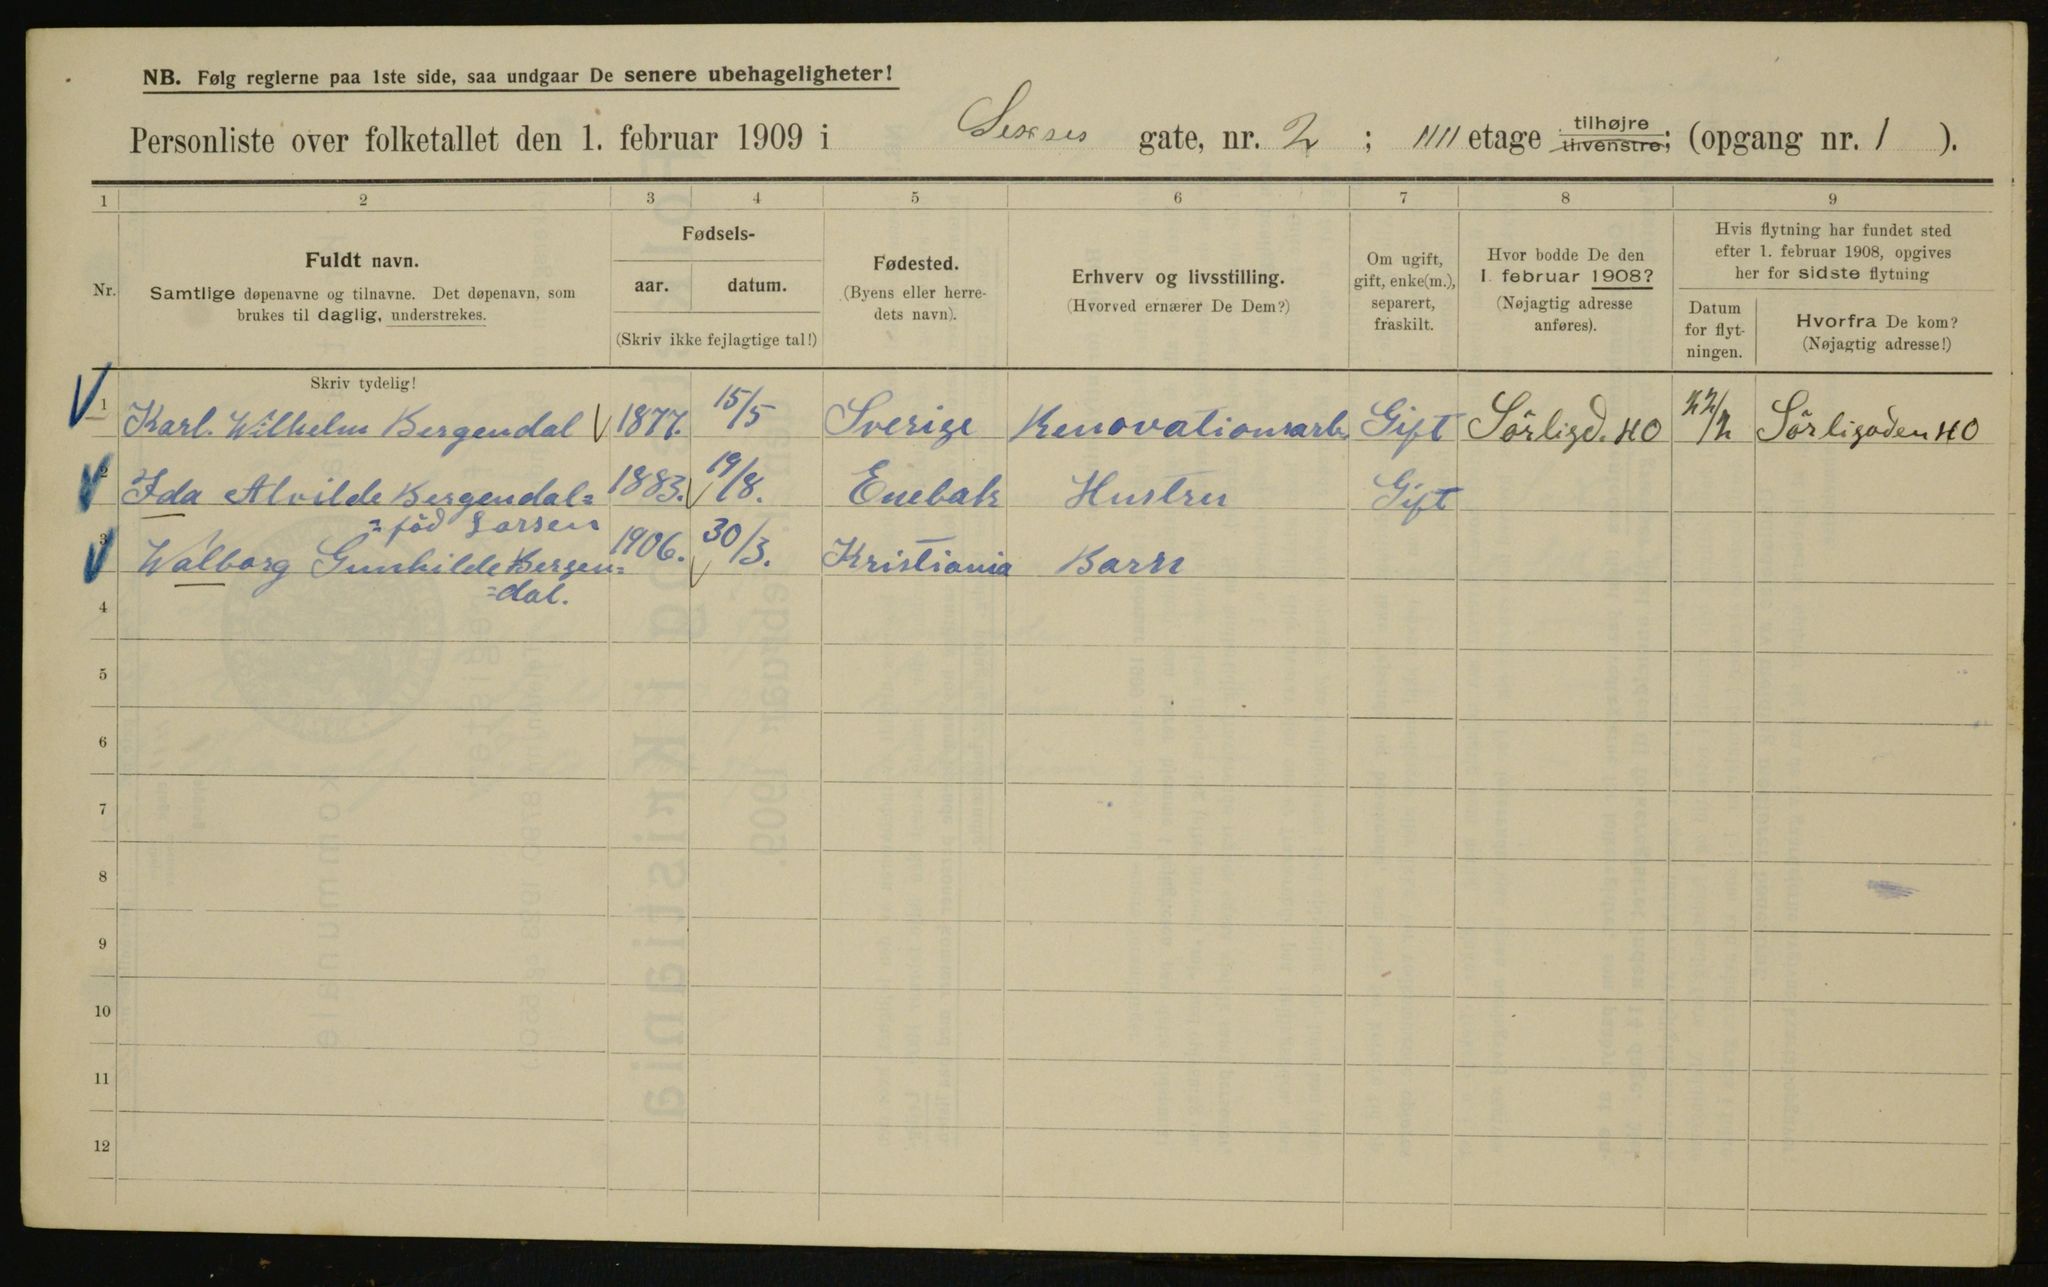 NB. Følg reglerne paa 1ste side, saa undgaar De senere ubehageligheter!
Personliste over folketallet den 1. februar 1909 i Sexes gate, nr. 2 ; IIII etage tilhøjre tilvenstre; (opgang nr. 1 ).
1 2 3 4 5 6 7 8 9
Nr.
Fuldt navn.
Samtlige døpenavne og tilnavne. Det døpenavn, som
brukes til daglig, understrekes.
Fødsels-
aar. datum.
(Skriv ikke fejlagtige tal!)
Fødested.
(Byens eller herre-
dets navn).
Erhverv og livsstilling.
(Hvorved ernærer De Dem?)
Om ugift,
gift, enke(m.),
separert,
fraskilt.
Hvor bodde De den
1. februar 1908?
(Nøjagtig adresse
anføres).
Hvis flytning har fundet sted
efter 1. februar 1908, opgives
her for sidste flytning
Datum
for flyt-
ningen.
Hvorfra De kom?
(Nøjagtig adresse!)
Skriv tydelig!
1 Karl. Wilhelm Bergendal 1877. 15/5 Sverige Renovationsarb. Gift Sörligd. 40 Sörligaden 40
2 Ida Alvilde Bergendal= 1883. 19/8. Enebak Hustru Gift
=föd Larsen
3 Walborg Gunhilde Bergen= 1906. 30/3. Kristiania Barn
=dal.
4
5
6
7
8
9
10
11
12